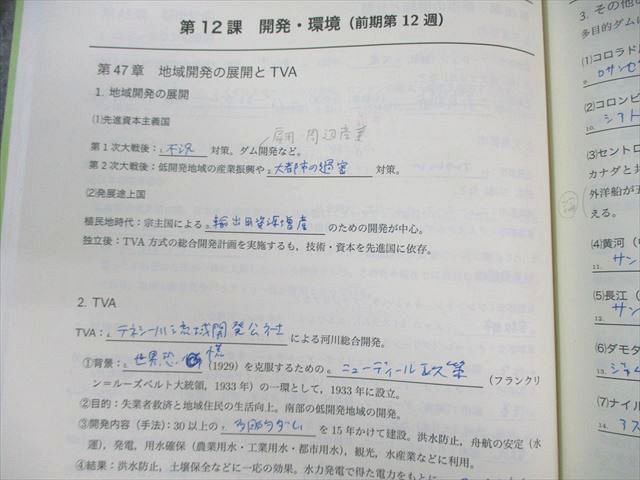 第12課 開発・環境（前期第12週）
第47章 地域開発の展開とTVA
1. 地域開発の展開
(1)先進資本主義国
雇用・周辺産業
第1次大戦後：1.不況 対策。ダム開発など。
第2次大戦後：低開発地域の産業振興や2.大都市の過密 対策。
(2)発展途上国
植民地時代：宗主国による3.輸出用資源増産 のための開発が中心。
独立後：TVA方式の総合開発計画を実施するも，技術・資本を先進国に依存。
2. TVA
TVA：4.テネシー川流域開発公社 による河川総合開発。
①背景：5.世界恐慌（1929）を克服するための6.ニューディール政策（フランクリ
ン=ルーズベルト大統領，1933年）の一環として，1933年に設立。
②目的：失業者救済と地域住民の生活向上。南部の低開発地域の開発。
③開発内容（手法）：30以上の7.多目的ダム を15年かけて建設。洪水防止，舟航の安定（水
運），発電，用水確保（農業用水・工業用水・都市用水），観光，水産業などに利用。
④結果：洪水防止，土壌保全などに一応の効果。水力発電で得た電力をもとに
3. その他
多目的ダム
(1)コロラド
9.ロサンゼ
(2)コロンビ
10.シアト
(3)セントロ
カナダと共
外洋船が五
える。
(4)黄河（
11.サン
(5)長江（
12.サン
(6)ダモダ
13.ジャム
(7)ナイル
14.アス